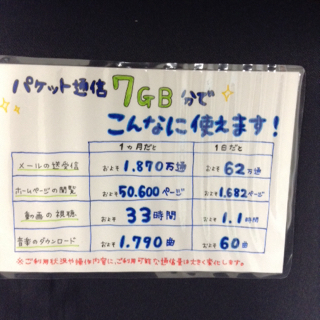 パケット通信 7GB 分で
こんなに使えます!
1ヵ月だと 1日だと
メールの送受信 およそ1.870万通 およそ62万通
ホームページの閲覧 およそ50.600ページ およそ1.682ページ
動画の視聴 およそ33時間 およそ1.1時間
音楽のダウンロード およそ1.790曲 およそ60曲
※ご利用状況や操作内容に、ご利用可能な通信量は大きく変化します。